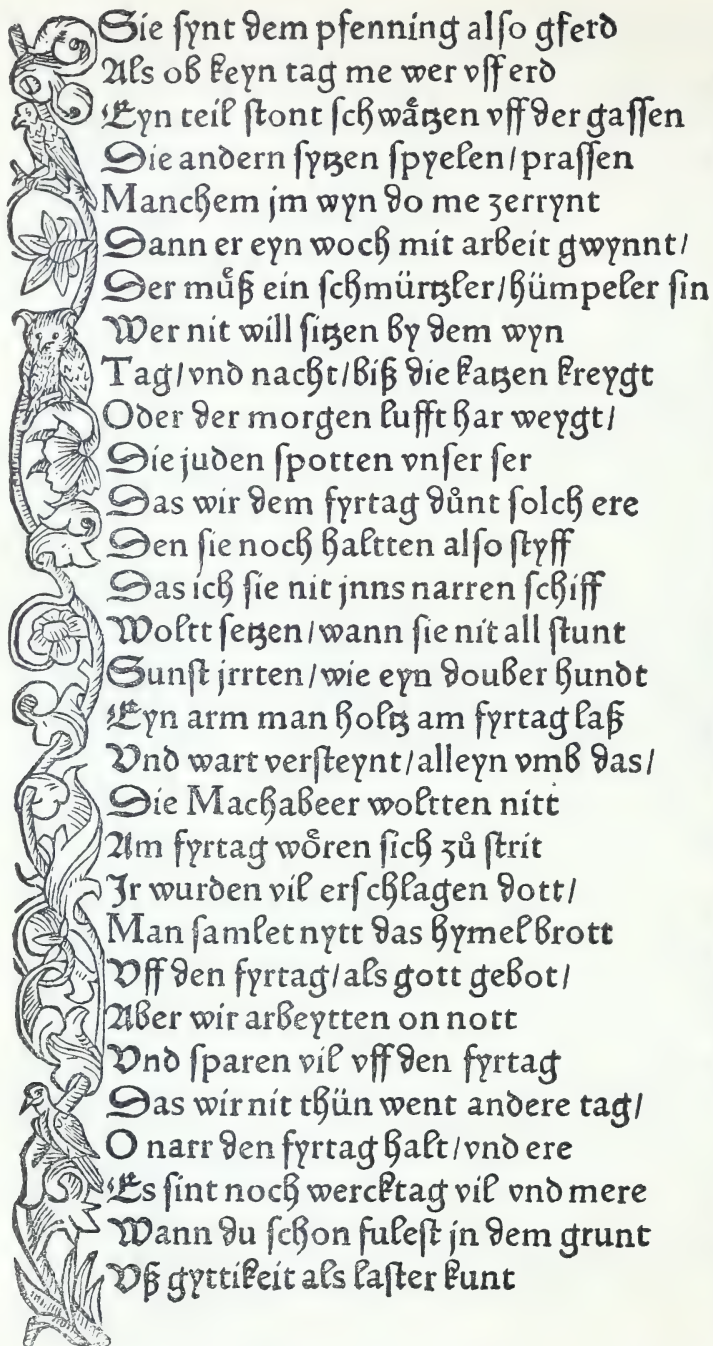 Die ſynt dem pfenning alſo gferd
Als ob keyn tag me wer vff erd
Eyn teil ſtont ſchwåtzen vff der gaſſen
Die andern ſytzen ſpyelen/praſſen
Manchem jm wyn do me zerrynt
Dann er eyn woch mit arbeit gwynnt/
Der můß ein ſchmürtzler/hümpeler ſin
Wer nit will ſitzen by dem wyn
Tag/vnd nacht/biß die katzen kreygt
Oder der morgen lufft har weygt/
Die juden ſpotten vnſer ſer
Das wir dem fyrtag důnt ſolch ere
Den ſie noch haltten alſo ſtyff
Das ich ſie nit jnns narren ſchiff
Woltt ſetzen/wann ſie nit all ſtunt
Sunſt jrrten/wie eyn douber hundt
Eyn arm man holtz am fyrtag laß
Vnd wart verſteynt/alleyn vmb das/
Die Machabeer woltten nitt
Am fyrtag woͤren ſich zů ſtrit
Jr wurden vil erſchlagen dott/
Man ſamlet nytt das hymelbrott
Vff den fyrtag/als gott gebot/
Aber wir arbeytten on nott
Vnd ſparen vil vff den fyrtag
Das wir nit thün went andere tag/
O narr den fyrtag halt/vnd ere
Es ſint noch wercktag vil vnd mere
Wann du ſchon fuleſt jn dem grunt
Vß gyttikeit als laſter kunt